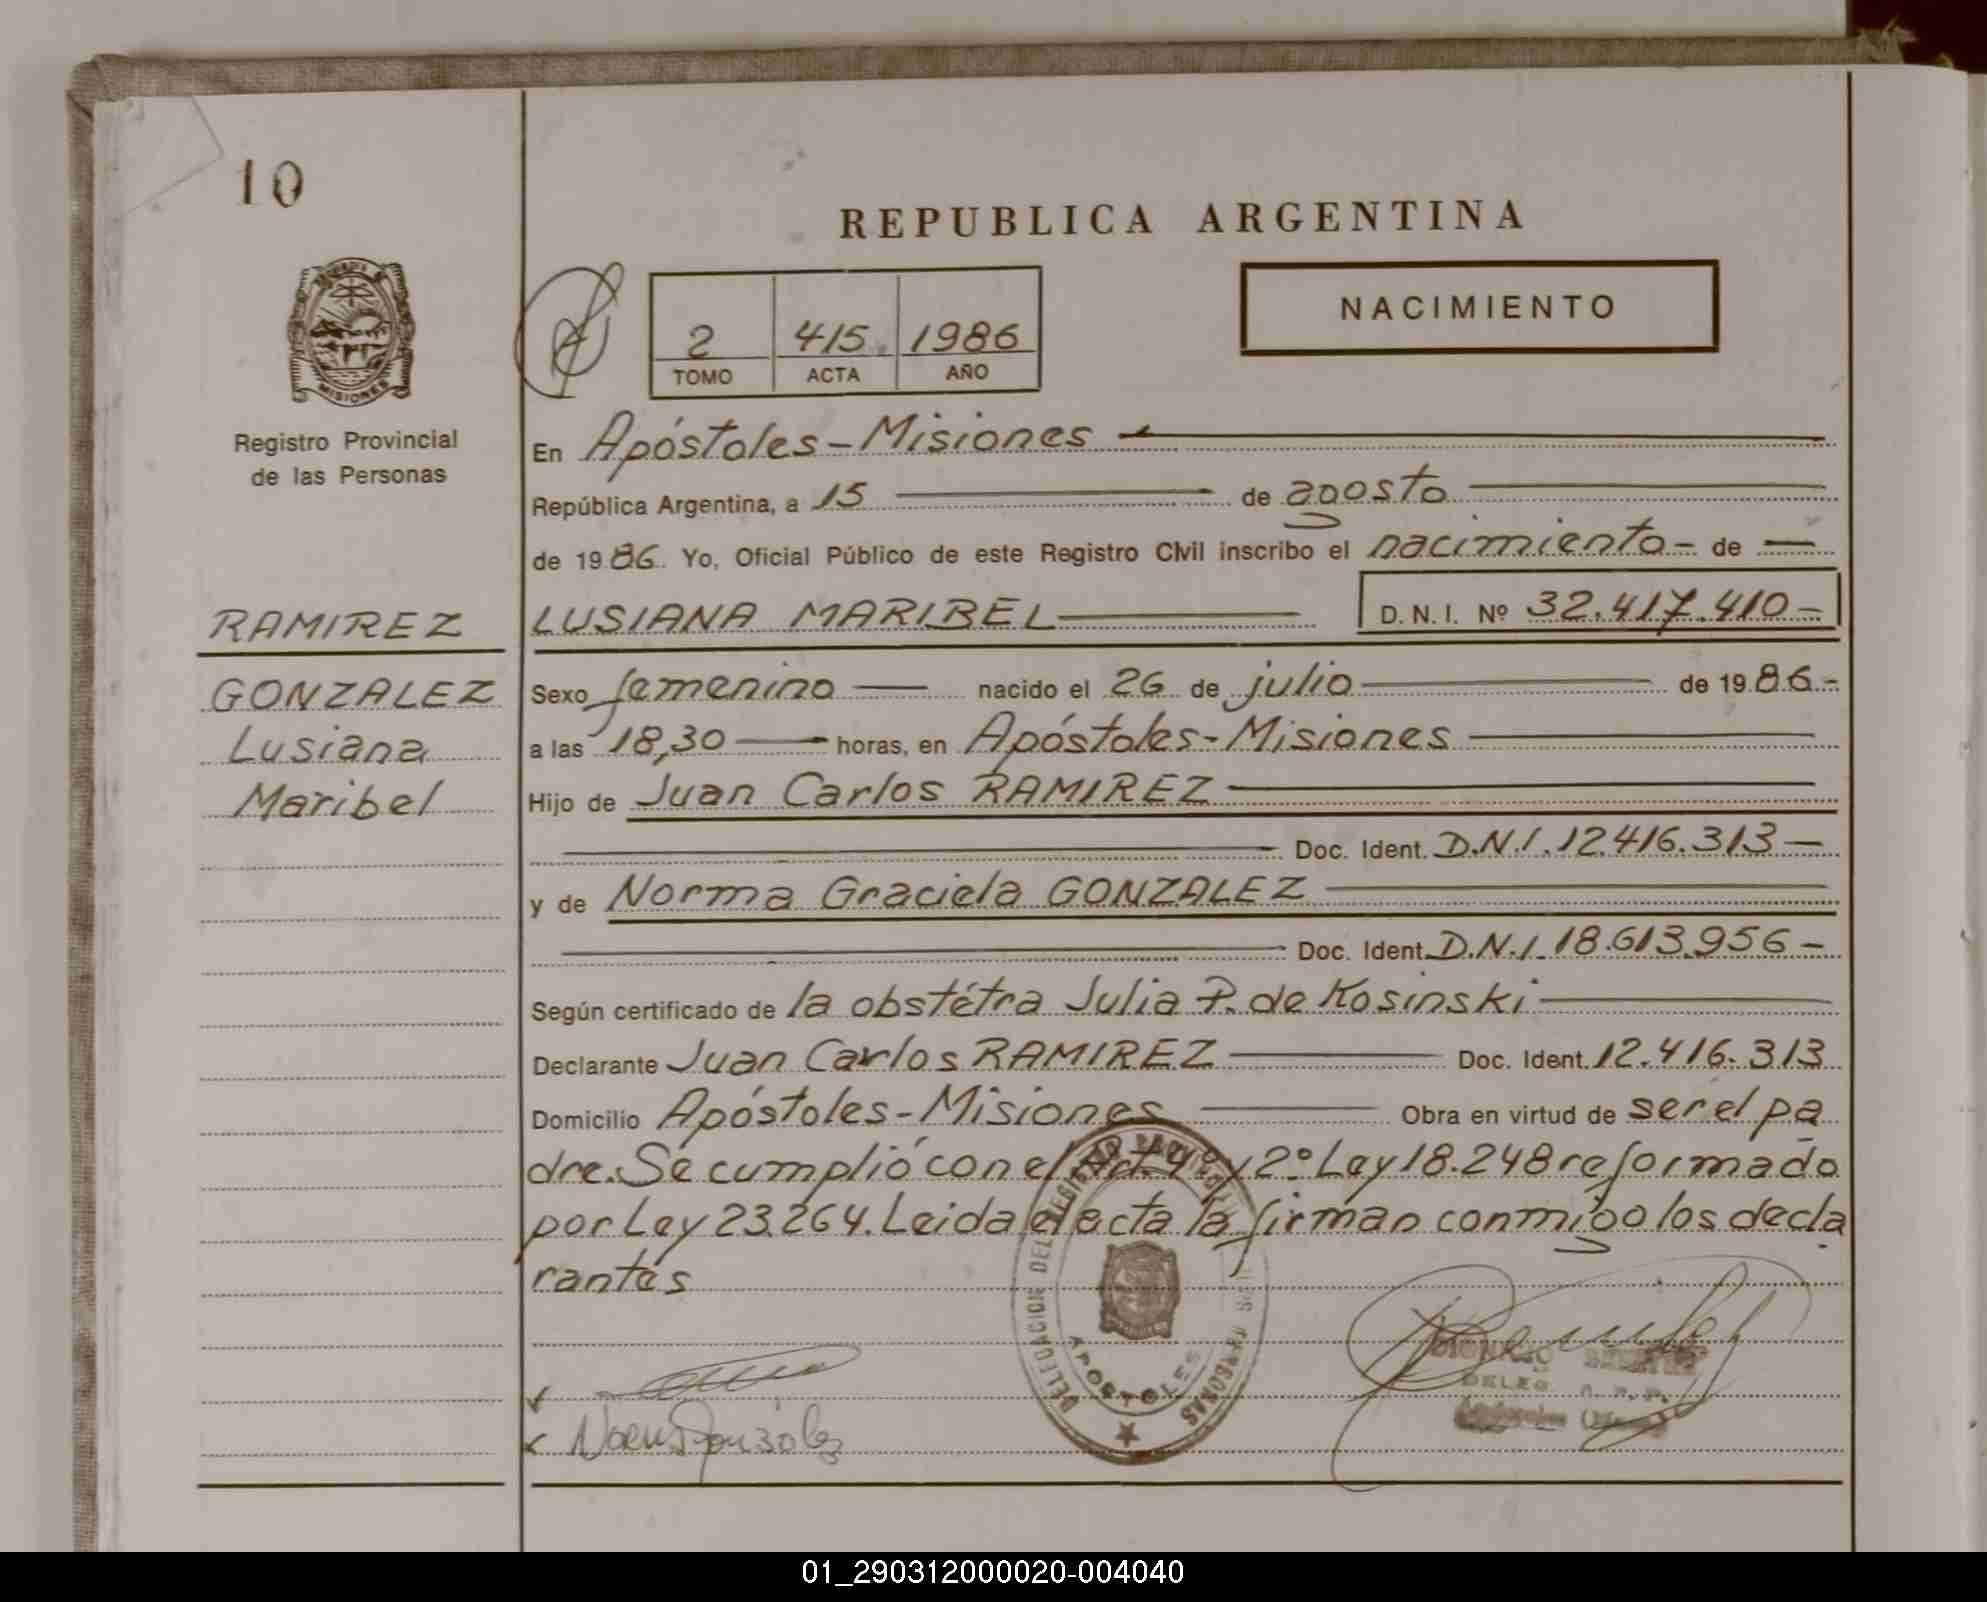 10
REPUBLICA ARGENTINA
MISIONES
Registro Provincial
de las Personas
2 415 1986
TOMO ACTA AÑO
NACIMIENTO
En Apóstoles - Misiones
República Argentina, a 15 de agosto
de 1986. Yo, Oficial Público de este Registro Civil inscribo el nacimiento - de —
RAMIREZ LUSIANA MARIBEL D. N. I. Nº 32.417.410 -
GONZALEZ Sexo femenino nacido el 26 de julio de 1986 -
Lusiana a las 18,30 horas, en Apóstoles - Misiones
Maribel Hijo de Juan Carlos RAMIREZ
Doc. Ident. D.N.I. 12.416.313 —
y de Norma Graciela GONZALEZ
Doc. Ident. D.N.I. 18.613.956 -
Según certificado de la obstétra Julia P. de Kosinski
Declarante Juan Carlos RAMIREZ Doc. Ident. 12.416.313
Domicilio Apóstoles - Misiones Obra en virtud de ser el pa
dre. Se cumplió con el Art. 1º y 2º Ley 18.248 reformado
por Ley 23.264. Leida el acta la firman conmigo los decla
rantes
DELEGACION DEL REGISTRO PROVINCIAL DE LAS PERSONAS
APOSTOLES
DELEG. R. P. P.
01_290312000020-004040